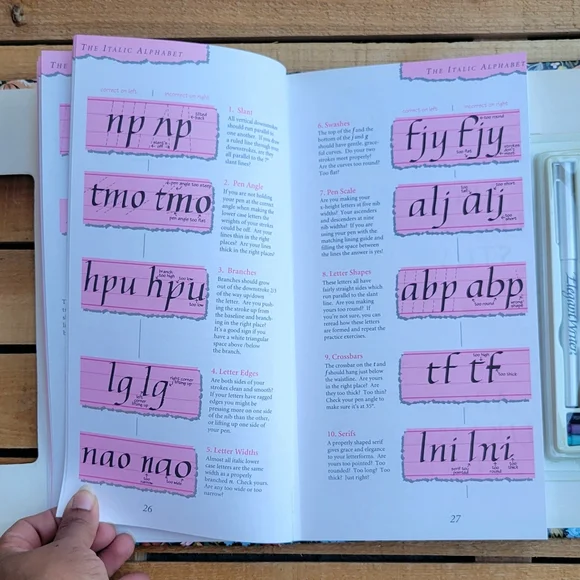 THE ITALIC ALPHABET
correct on left...
incorrect on right
np np
1. Slant
All vertical downstrokes
should run parallel to
one another. If you draw
a ruled line through your
downstrokes, are they
all parallel to the 7°
slant lines?
tmo tmo
pen angle too steep
pen angle too flat
2. Pen Angle
If you are not holding
your pen at the correct
angle when making the
lower case letters the
weights of your strokes
could be off. Are your
lines thin in the right
places? Are your lines
thick in the right place?
hpu hpu
branch
too high
too low
too low
3. Branches
Branches should grow
out of the downstroke 2/3
of the way up/down
the letter. Are you push-
ing the stroke up from
the baseline and branch-
ing in the right place?
It's a good sign if you
have a white triangular
space above /below
the branch.
lg lg
right corner
lifting up
left corner
lifting up
4. Letter Edges
Are both sides of your
strokes clean and smooth?
If your letters have ragged
edges you might be
pressing more on one
side of the nib than the other,
or lifting up one side of
your pen.
nao nao
too wide
5. Letter Widths
Almost all italic lower
case letters are the same
width as a properly
branched n. Check yours.
Are any too wide or too
narrow?
26
THE ITALIC ALPHABET
correct on left...
incorrect on right
6. Swashes
The top of the f and the
bottom of the j and g
should have gentle, grace-
ful curves. Do your two
strokes meet properly?
Are the curves too round?
Too flat?
fjy fjy
too flat
7. Pen Scale
Are you making your
x-height letters at five nib
widths? Your ascenders
and descenders at nine
nib widths? If you are
using your pen with the
matching lining guide and
filling the space between
the lines the answer is yes!
alj alj
too short
too short
8. Letter Shapes
These letters all have
fairly straight sides which
run parallel to the slant
line. Are you making
yours too round? If
you're not sure, you can
reread how these letters
are formed and repeat the
practice exercises.
abp abp
too round
9. Crossbars
The crossbar on the t and
f should hang just below
the waistline. Are yours
in the right place? Are
they too thick? Too thin?
Check your pen angle to
make sure it's at 35°.
tf tf
too high
too thick
10. Serifs
A properly shaped serif
gives grace and elegance
to your letterforms. Are
yours too pointed? Too
rounded? Too long? Too
thick? Just right?
lni lni
serif too
pointed
too
round
too
thick
27